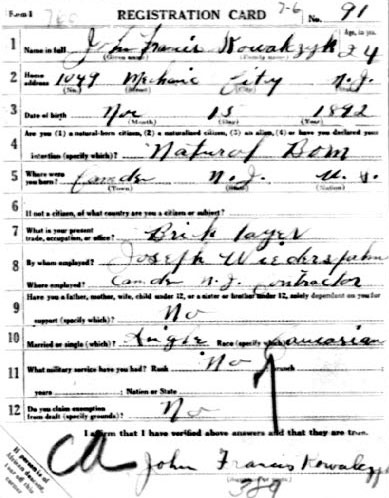 Form 1 REGISTRATION CARD No. 91
1 Name in full John Francis Kowalczyk Age, in yrs. 24
(Given name) (Family name)
2 Home address 1049 Mechanic City N.J.
(No.) (Street) (City) (State)
3 Date of birth Nov 15 1892
(Month) (Day) (Year)
Are you (1) a natural-born citizen, (2) a naturalized citizen, (3) an alien, (4) or have you declared your
4 intention (specify which)? Natural Born
5 Where were you born? Camden N.J. U.S.
(Town) (State) (Nation)
6 If not a citizen, of what country are you a citizen or subject?
7 What is your present trade, occupation, or office? Brick layer
8 By whom employed? Joseph Wiederspahn
Where employed? Camden N.J. Contractor
Have you a father, mother, wife, child under 12, or a sister or brother under 12, solely dependent on you for
9 support (specify which)? No
10 Married or single (which)? Single Race (specify which)? Caucasian
11 What military service have you had? Rank No Branch
years Nation or State
12 Do you claim exemption from draft (specify grounds)? No
I affirm that I have verified above answers and that they are true.
John Francis Kowalczyk
389
If person is of African descent, tear off this corner